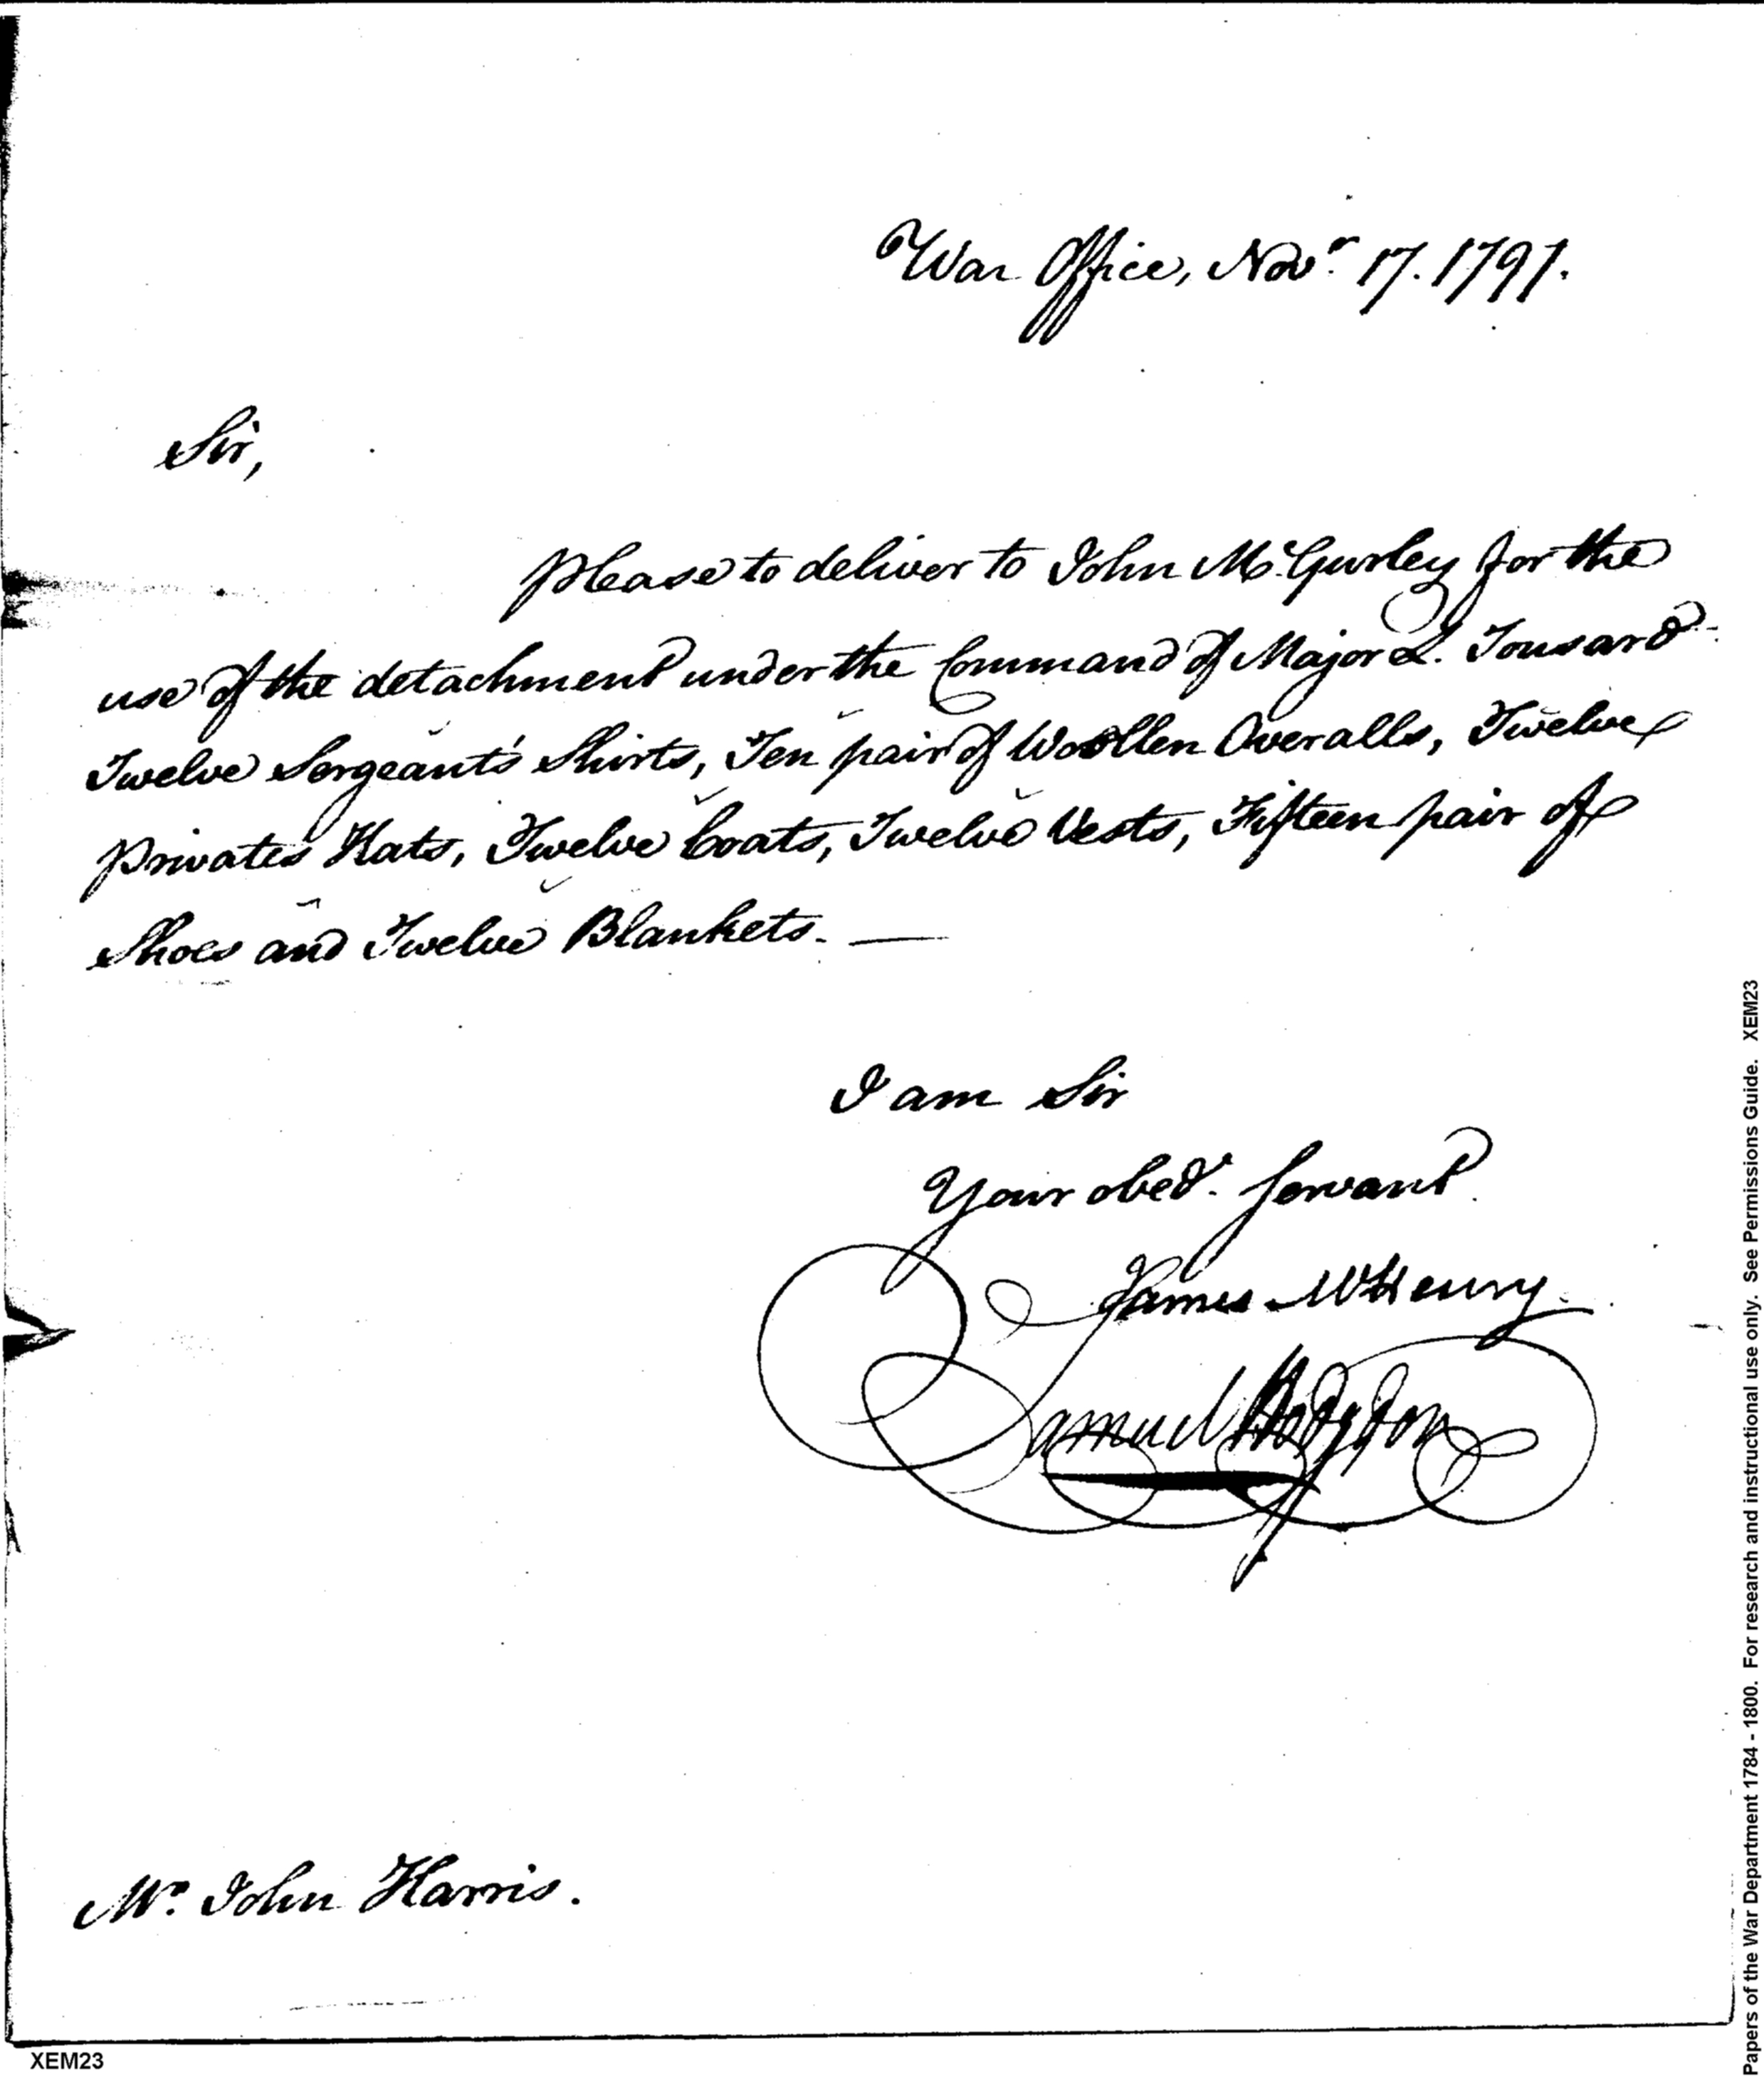 War Office, Novr. 17. 1797.
Sir,
Please to deliver to John McGurley for the
use of the detachment under the Command of Major L. Tousard
Twelve Sergeant's Shirts, Ten pair of Woollen Overalls, Twelve
Privates Hats, Twelve Coats, Twelve Vests, Fifteen pair of
Shoes and Twelve Blankets. —
I am Sir
Your obedt. Servant
James McHenry
Samuel Hodgdon
Mr. John Harris.
XEM23
Papers of the War Department 1784 - 1800. For research and instructional use only. See Permissions Guide. XEM23